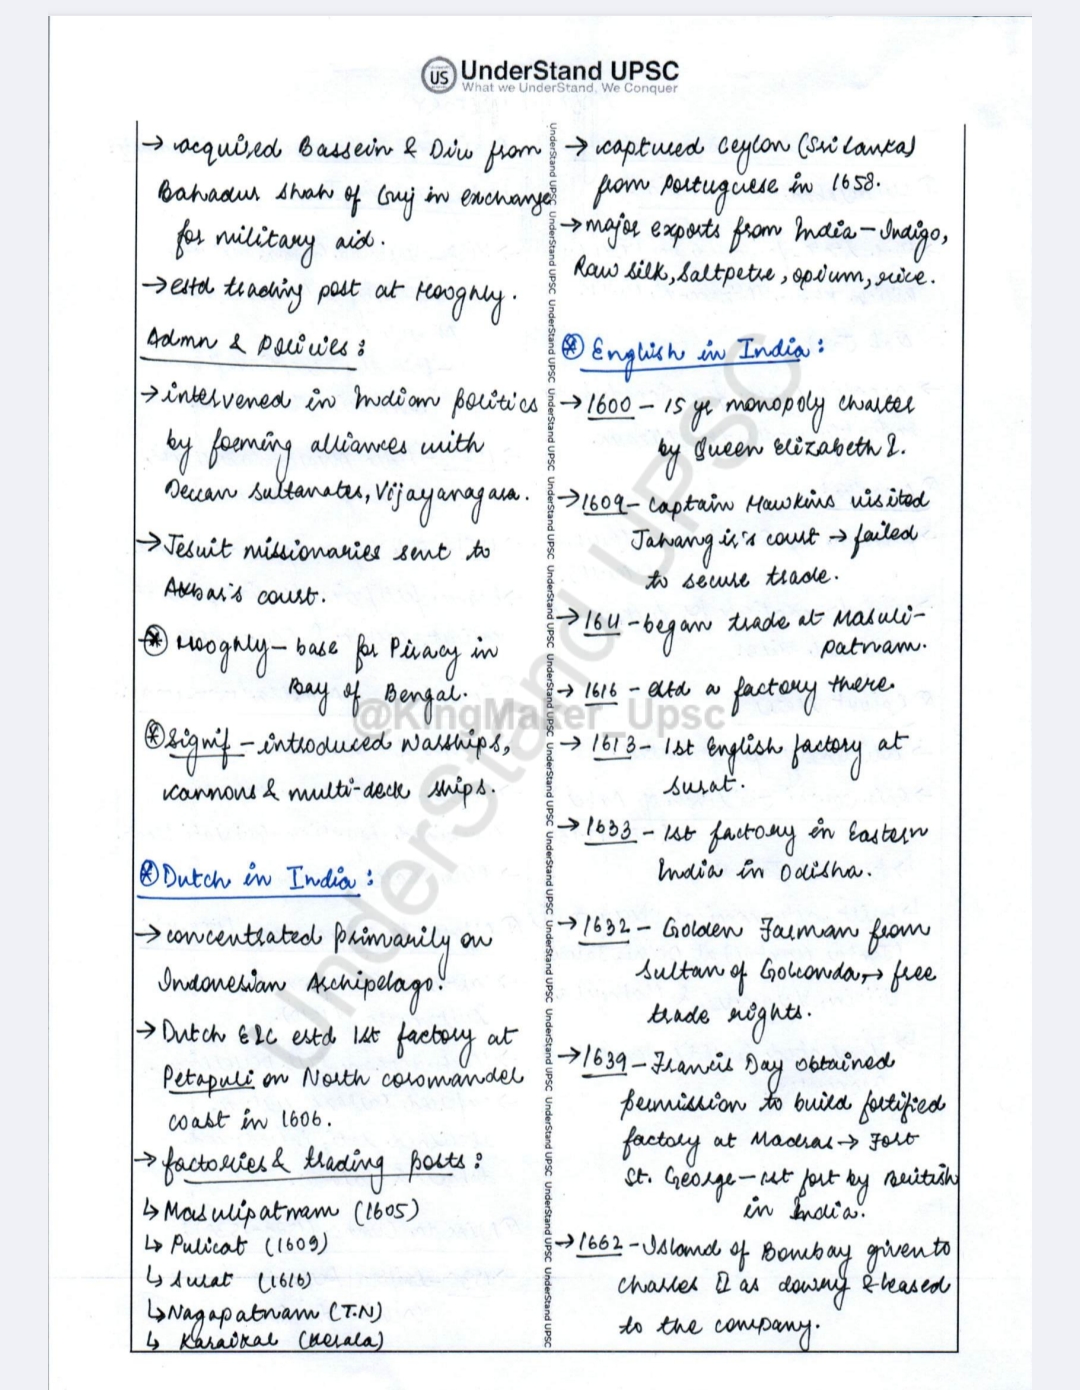 US UnderStand UPSC
What we UnderStand, We Conquer
→ acquired Bassein & Diu from
Bahadur Shah of Guj in exchange
for military aid.
→ estd trading post at Hooghly.
Admn & Policies:
→ intervened in Indian politics
by forming alliances with
Deccan Sultanates, Vijayanagara.
→ Jesuit missionaries sent to
Akbar's court.
* Hooghly – base for Piracy in
Bay of Bengal.
* Signif – introduced Warships,
cannons & multi-deck ships.
* Dutch in India:
→ concentrated primarily on
Indonesian Archipelago.
→ Dutch EIC estd 1st factory at
Petapuli on North coromandel
coast in 1606.
→ factories & trading posts:
↳ Masulipatnam (1605)
↳ Pulicat (1609)
↳ Surat (1616)
↳ Nagapatnam (T.N)
↳ Karaikal (Kerala)
UnderStand UPSC UnderStand UPSC UnderStand UPSC UnderStand UPSC UnderStand UPSC UnderStand UPSC UnderStand UPSC UnderStand UPSC UnderStand UPSC UnderStand UPSC UnderStand UPSC UnderStand UPSC UnderStand UPSC UnderStand UPSC
→ captured Ceylon (Sri Lanka)
from Portuguese in 1658.
→ major exports from India – Indigo,
Raw silk, Saltpetre, opium, rice.
* English in India:
→ 1600 – 15 yr monopoly charter
by Queen Elizabeth I.
→ 1609 – Captain Hawkins visited
Jahangir's court → failed
to secure trade.
→ 1611 – began trade at Masuli-
patnam.
→ 1616 – estd a factory there.
→ 1613 – 1st English factory at
Surat.
→ 1633 – 1st factory in Eastern
India in Odisha.
→ 1632 – Golden Farman from
Sultan of Golconda, → free
trade rights.
→ 1639 – Francis Day obtained
permission to build fortified
factory at Madras → Fort
St. George – 1st fort by British
in India.
→ 1662 – Island of Bombay given to
Charles II as dowry & leased
to the company.
UnderStand UPSC
@KingMaker_Upsc